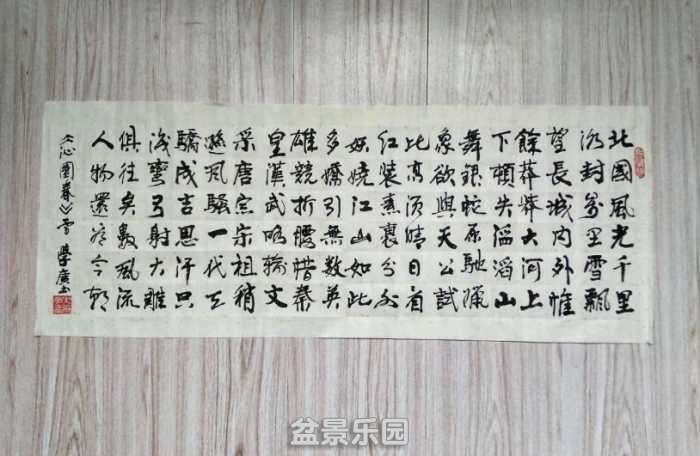 北國風光千里
冰封萬里雪飄
望長城内外惟
餘莽莽大河上
下頓失滔滔山
舞銀蛇原馳蠟
象欲與天公試
比高須晴日看
紅裝素裹分外
妖嬈江山如此
多嬌引無數英
雄競折腰惜秦
皇漢武略輸文
采唐宗宋祖稍
遜風騷一代天
驕成吉思汗只
識彎弓射大雕
俱往矣數風流
人物還看今朝
《沁園春》雪 學廣书
盆景乐园